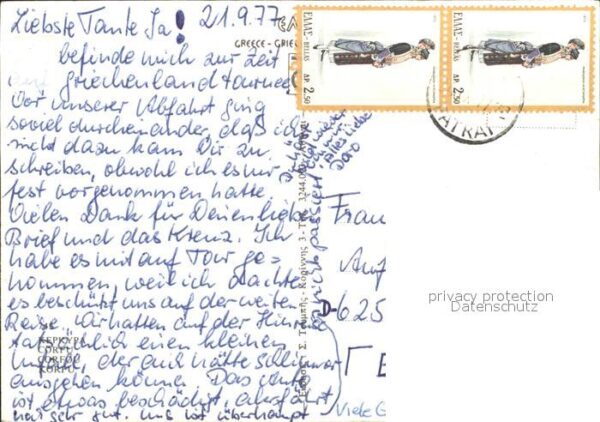 Liebste Tante Ja! 21.9.77
befinde mich zur Zeit
auf Griechenlandtournee
Vor unserer Abfahrt ging
soviel durcheinander, daß ich
nicht dazu kam Dir zu
schreiben, obwohl ich es mir
fest vorgenommen hatte.
Vielen Dank für Deinen lieben
Brief und das Kreuz. Ich
habe es mit auf Tour ge-
nommen, weil ich dachte
es beschützt uns auf der weiten
Reise. Wir hatten auf der Hin
einen kleinen
Unfall, der auch hätte schlimmer
ausgehen können. Das Auto
ist etwas beschädigt, aber fährt
sehr gut. uns ist überhaupt
nichts passiert
Alles Liebe
GREECE - GRIE
ΕΛΛΑΣ-HELLAS
ΔΡ 2.50
ΕΛΛΑΣ-HELLAS
ΔΡ 2.50
ΚΕΡΚΥΡΑ
CORFU
CORFOU
KORFU
Κορίννης 3 - Τηλ. 3244.
Frau
D-625
privacy protection
Datenschutz
Viele G